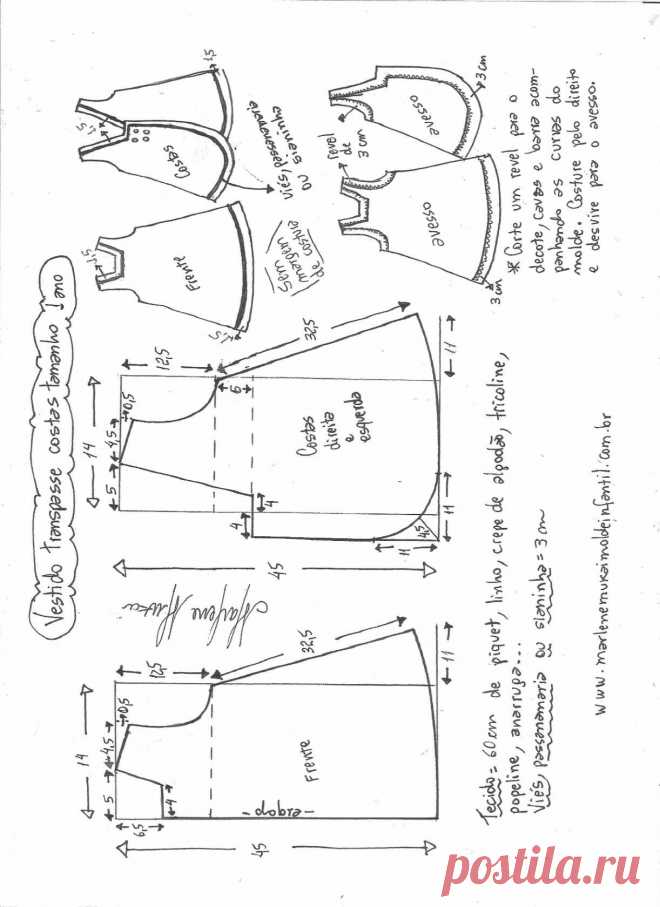 Vestido transpasse costas tamanho 1 ano
1,5
Frente
1,5
1,5
1,5
Costas
Viés, passamanaria
ou sianinha
Sem
margem
de costura
avesso
avesso
revel
de
3 cm
3 cm
3 cm
* Corte um revel para o
decote, cavas e barra acom-
panhando as curvas do
molde. Costure pelo direito
e desvire para o avesso.
14
5
4,5
0,5
12,5
32,5
6
4
4
45
11
4,5
11
11
Costas
direita
e
esquerda
Marlene Mukai
14
5
4,5
0,5
12,5
32,5
6,5
4
45
11
Frente
-dobra-
Tecido = 60cm de piquet, linho, crepe de algodão, tricoline,
popeline, anarruga...
Viés, passanamaria ou sianinha = 3 cm
www.marlenemukaimoldeinfantil.com.br
postila.ru